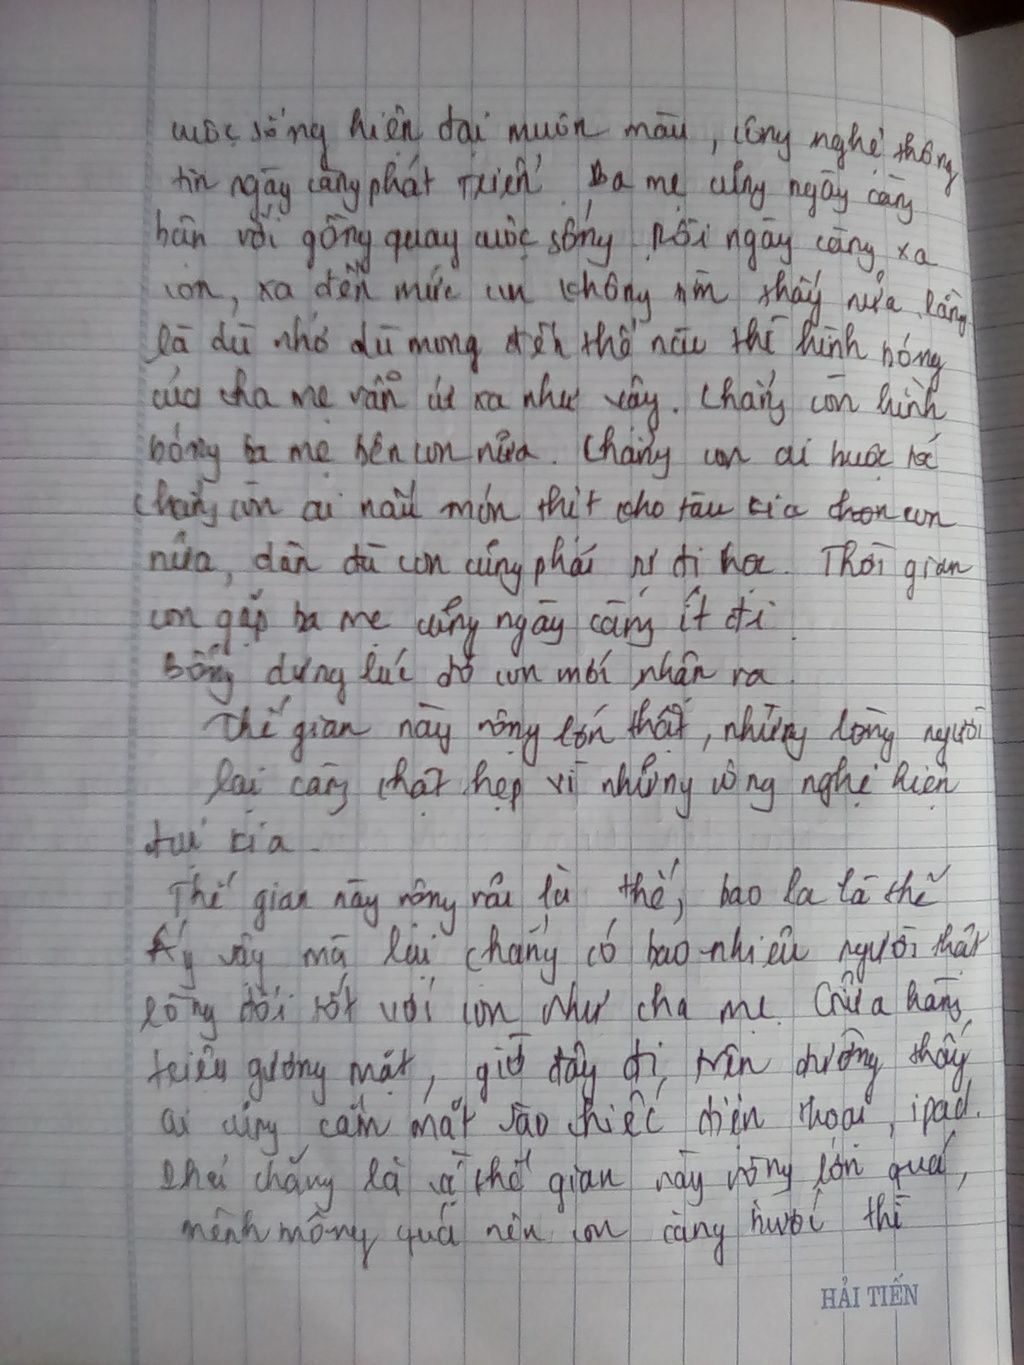 cuộc sống hiện đại muôn màu, công nghệ thông
tin ngày càng phát triển. Ba mẹ cũng ngày càng
bận với gồng quay cuộc sống. Rồi ngày càng xa
con, xa đến mức con không tìm thấy nữa,
là dù nhớ dù mong đến thế nào thì hình bóng
của cha mẹ vẫn cứ xa như vậy. Chẳng còn hình
bóng ba mẹ bên con nữa. Chẳng còn ai buộc tóc
chẳng còn ai nấu món thịt kho tàu kia cho con
nữa, dần dà con cũng phải tự đi học. Thời gian
con gặp ba mẹ cũng ngày càng ít đi.
Bỗng dưng lúc đó con mới nhận ra.
Thế gian này rộng lớn thật, nhưng lòng người
lại càng chật hẹp vì những công nghệ hiện
đại kia.
Thế gian này rộng rãi là thế, bao la là thế
Ấy vậy mà lại chẳng có bao nhiêu người thật
lòng đối tốt với con như cha mẹ. Giữa hàng
triệu gương mặt, giờ đây đi trên đường thấy
ai cũng cắm mặt vào chiếc điện thoại, ipad.
Phải chăng là vì thế gian này rộng lớn quá,
mênh mông quá nên con càng với thì
HẢI TIẾN